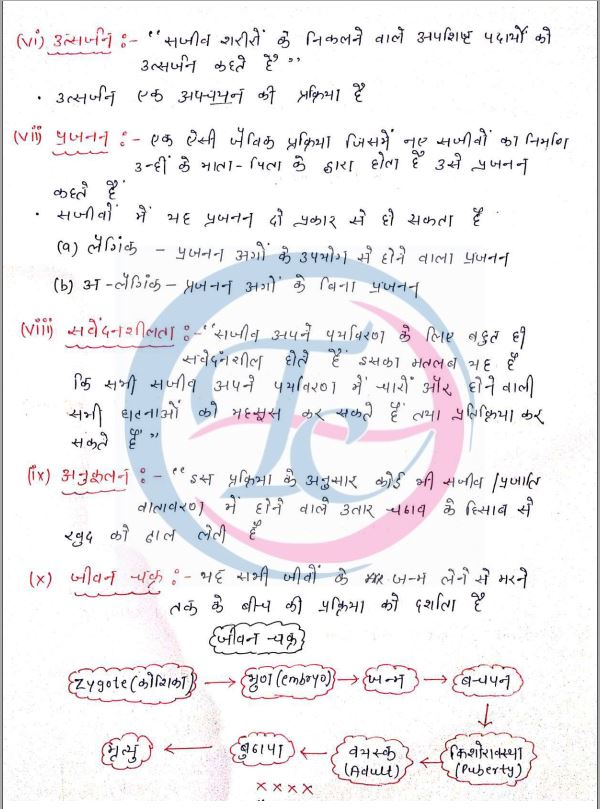 (vi) उत्सर्जन :- "सजीव शरीरों के निकलने वाले अपशिष्ट पदार्थों को
उत्सर्जन कहते हैं"
• उत्सर्जन एक अपचयन की प्रक्रिया है
(vii) प्रजनन :- एक ऐसी जैविक प्रक्रिया जिसमें नए सजीवों का निर्माण
उन्हीं के माता-पिता के द्वारा होता है उसे प्रजनन
कहते हैं
• सजीवों में यह प्रजनन दो प्रकार से हो सकता है
(a) लैंगिक - प्रजनन अंगों के उपयोग से होने वाला प्रजनन
(b) अ-लैंगिक - प्रजनन अंगों के बिना प्रजनन
(viii) सवेंदनशीलता :- "सजीव अपने पर्यावरण के लिए बहुत ही
सवेंदनशील होते हैं इसका मतलब यह है
कि सभी सजीव अपने पर्यावरण में चारों ओर होने वाली
सभी घटनाओं को महसूस कर सकते हैं तथा प्रतिक्रिया कर
सकते हैं"
(ix) अनुकूलन :- "इस प्रक्रिया के अनुसार कोई भी सजीव/प्रजाति
वातावरण में होने वाले उतार चढाव के हिसाब से
खुद को ढाल लेती है
(x) जीवन चक्र :- यह सभी जीवों के जन्म लेने से मरने
तक के बीच की प्रक्रिया को दर्शाता है
जीवन चक्र
Zygote (कोशिका) → भ्रूण (embryo) → जन्म → बचपन
मृत्यु ← बुढापा ← वयस्क (Adult) ← किशोरावस्था (Puberty)
××××
Tc